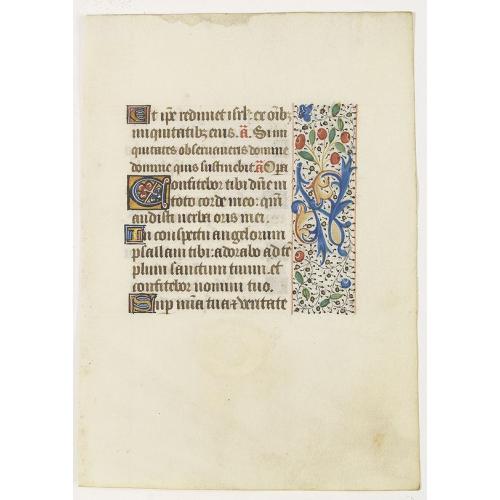 Et ip̄e redimet isrl̄: ex oīb3
iniquitatib3 eius. a᷃. Si ini
quitates observaveris domine
domine quis sustinebit a᷃ Opera
Confitebor tibi dn̄e in
toto corde meo: qm̄
audisti verba oris mei.
In conspectu angelorum
psallam tibi: adorabo ad tē
plum sanctum tuum. et
confitebor nomini tuo.
Sup mīa tua et veritate